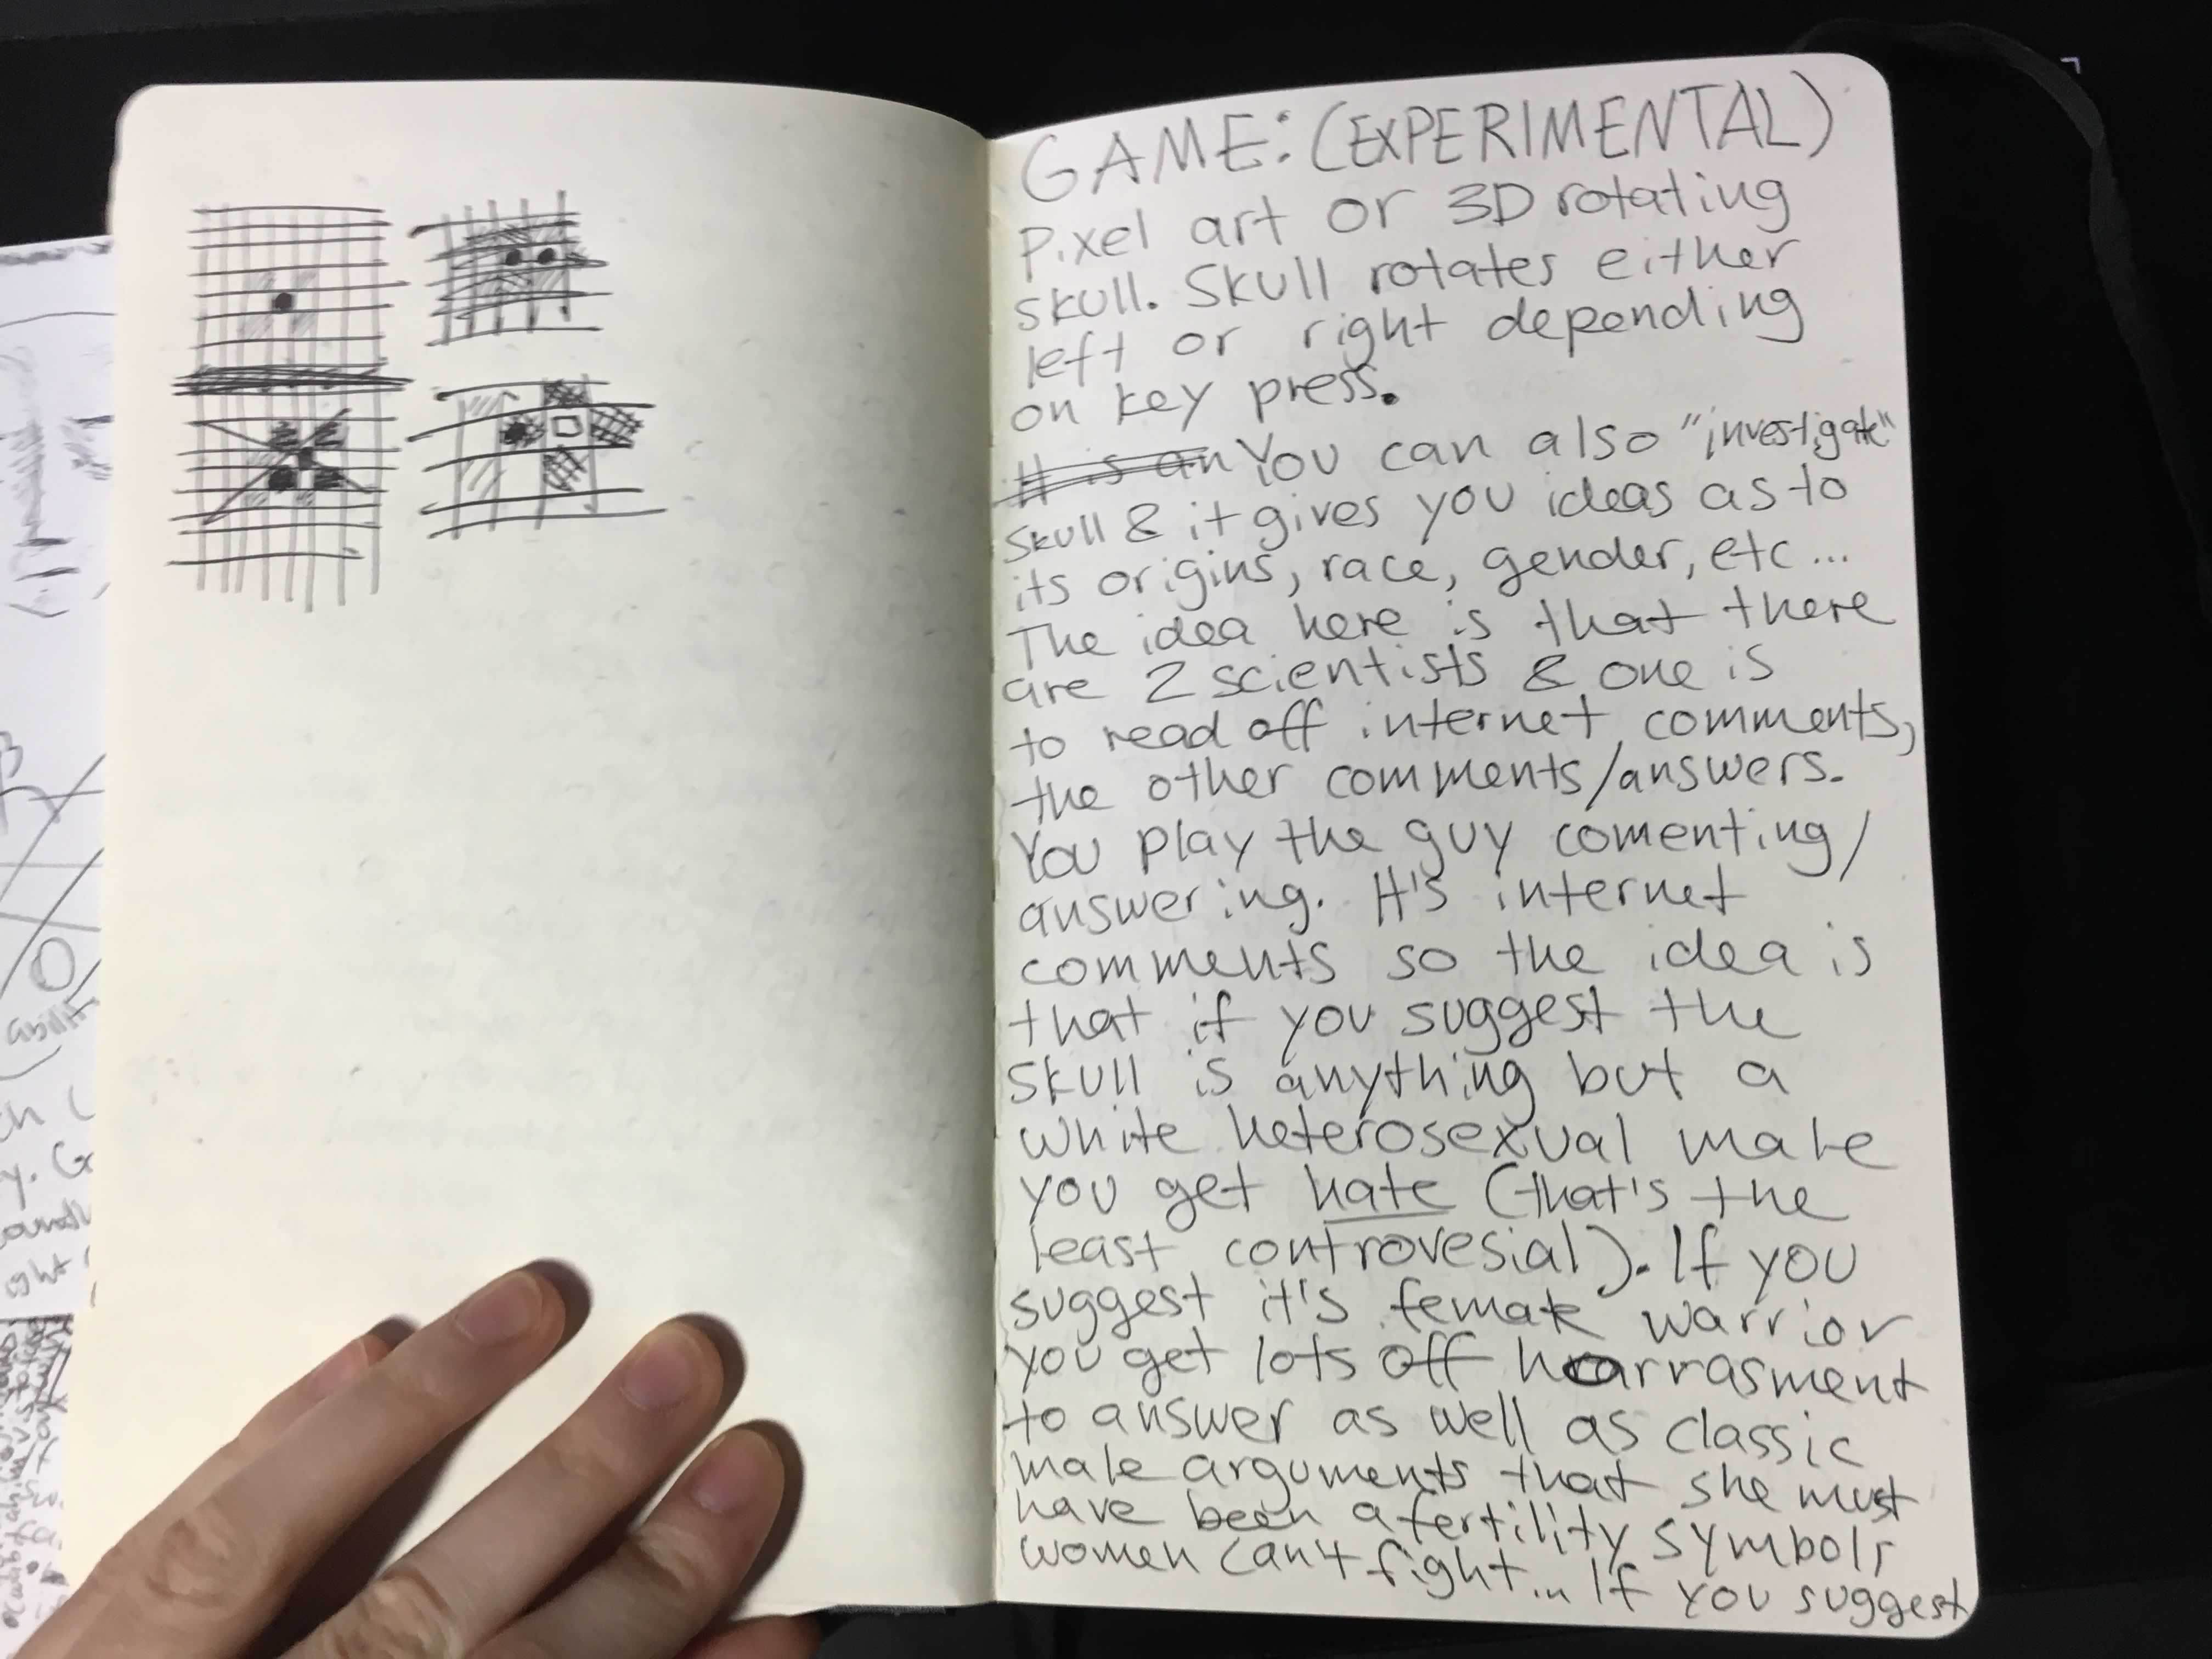 GAME: (EXPERIMENTAL)
Pixel art or 3D rotating
skull. Skull rotates either
left or right depending
on key press.
It is an You can also "investigate"
skull & it gives you ideas as to
its origins, race, gender, etc...
The idea here is that there
are 2 scientists & one is
to read off internet comments,
the other comments/answers.
You play the guy comenting/
answering. It's internet
comments so the idea is
that if you suggest the
skull is anything but a
white heterosexual male
you get hate (that's the
least controvesial). If you
suggest it's female warrior
you get lots off harrasment
to answer as well as classic
male arguments that she must
have been a fertility symbol,
women can't fight... If you suggest
abilit